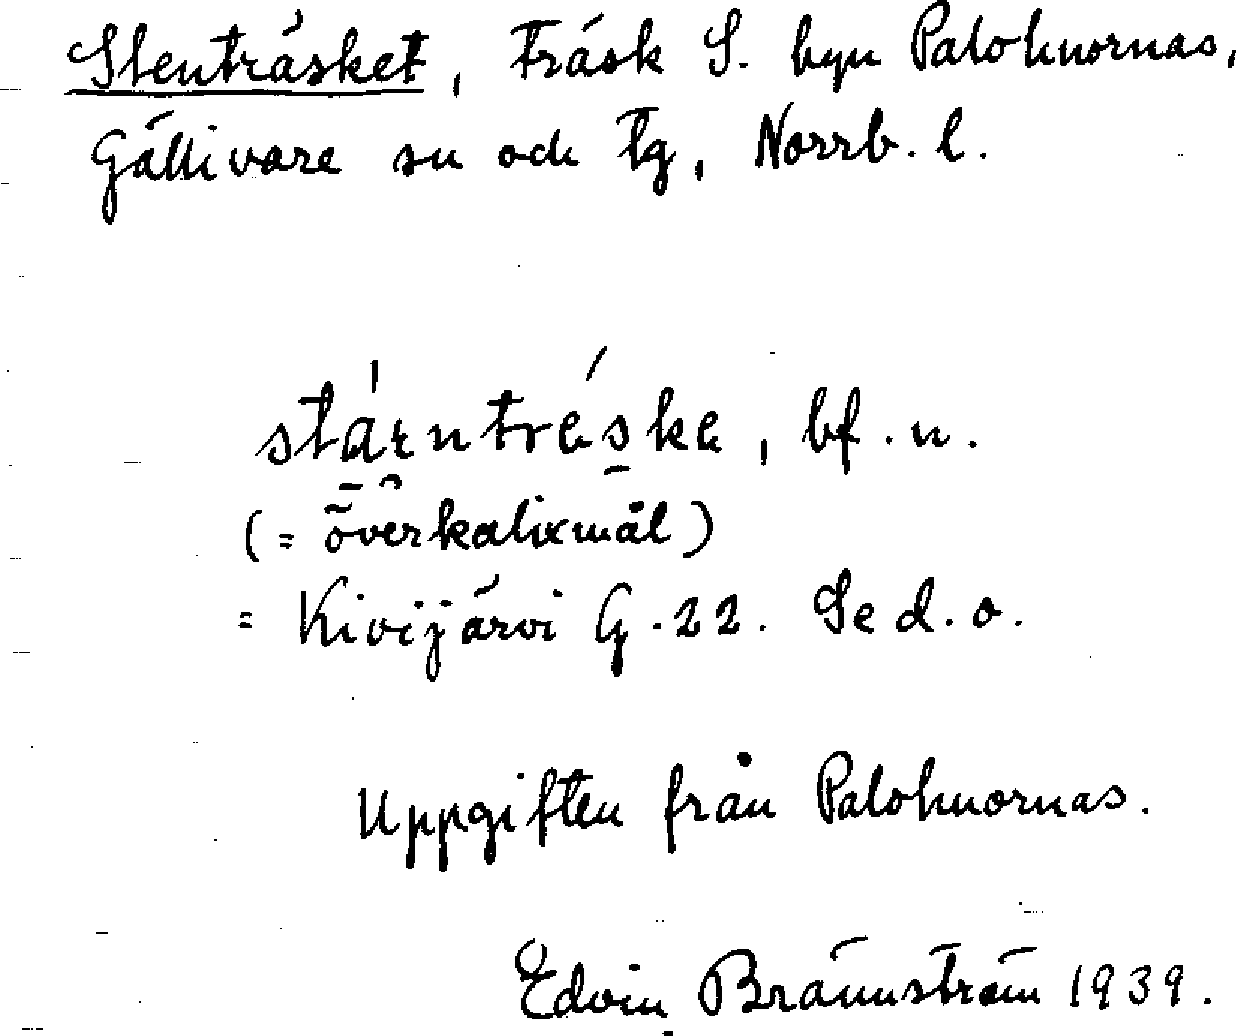 Stenträsket, träsk S. byn Palohuornas,
Gällivare sn och tg, Norrb. l.
stárntrέske, bf. n.
(= överkalixmål)
= Kivijärvi G. 22. Se d. o.
Uppgiften från Palohuornas.
Edvin Brännström 1939.